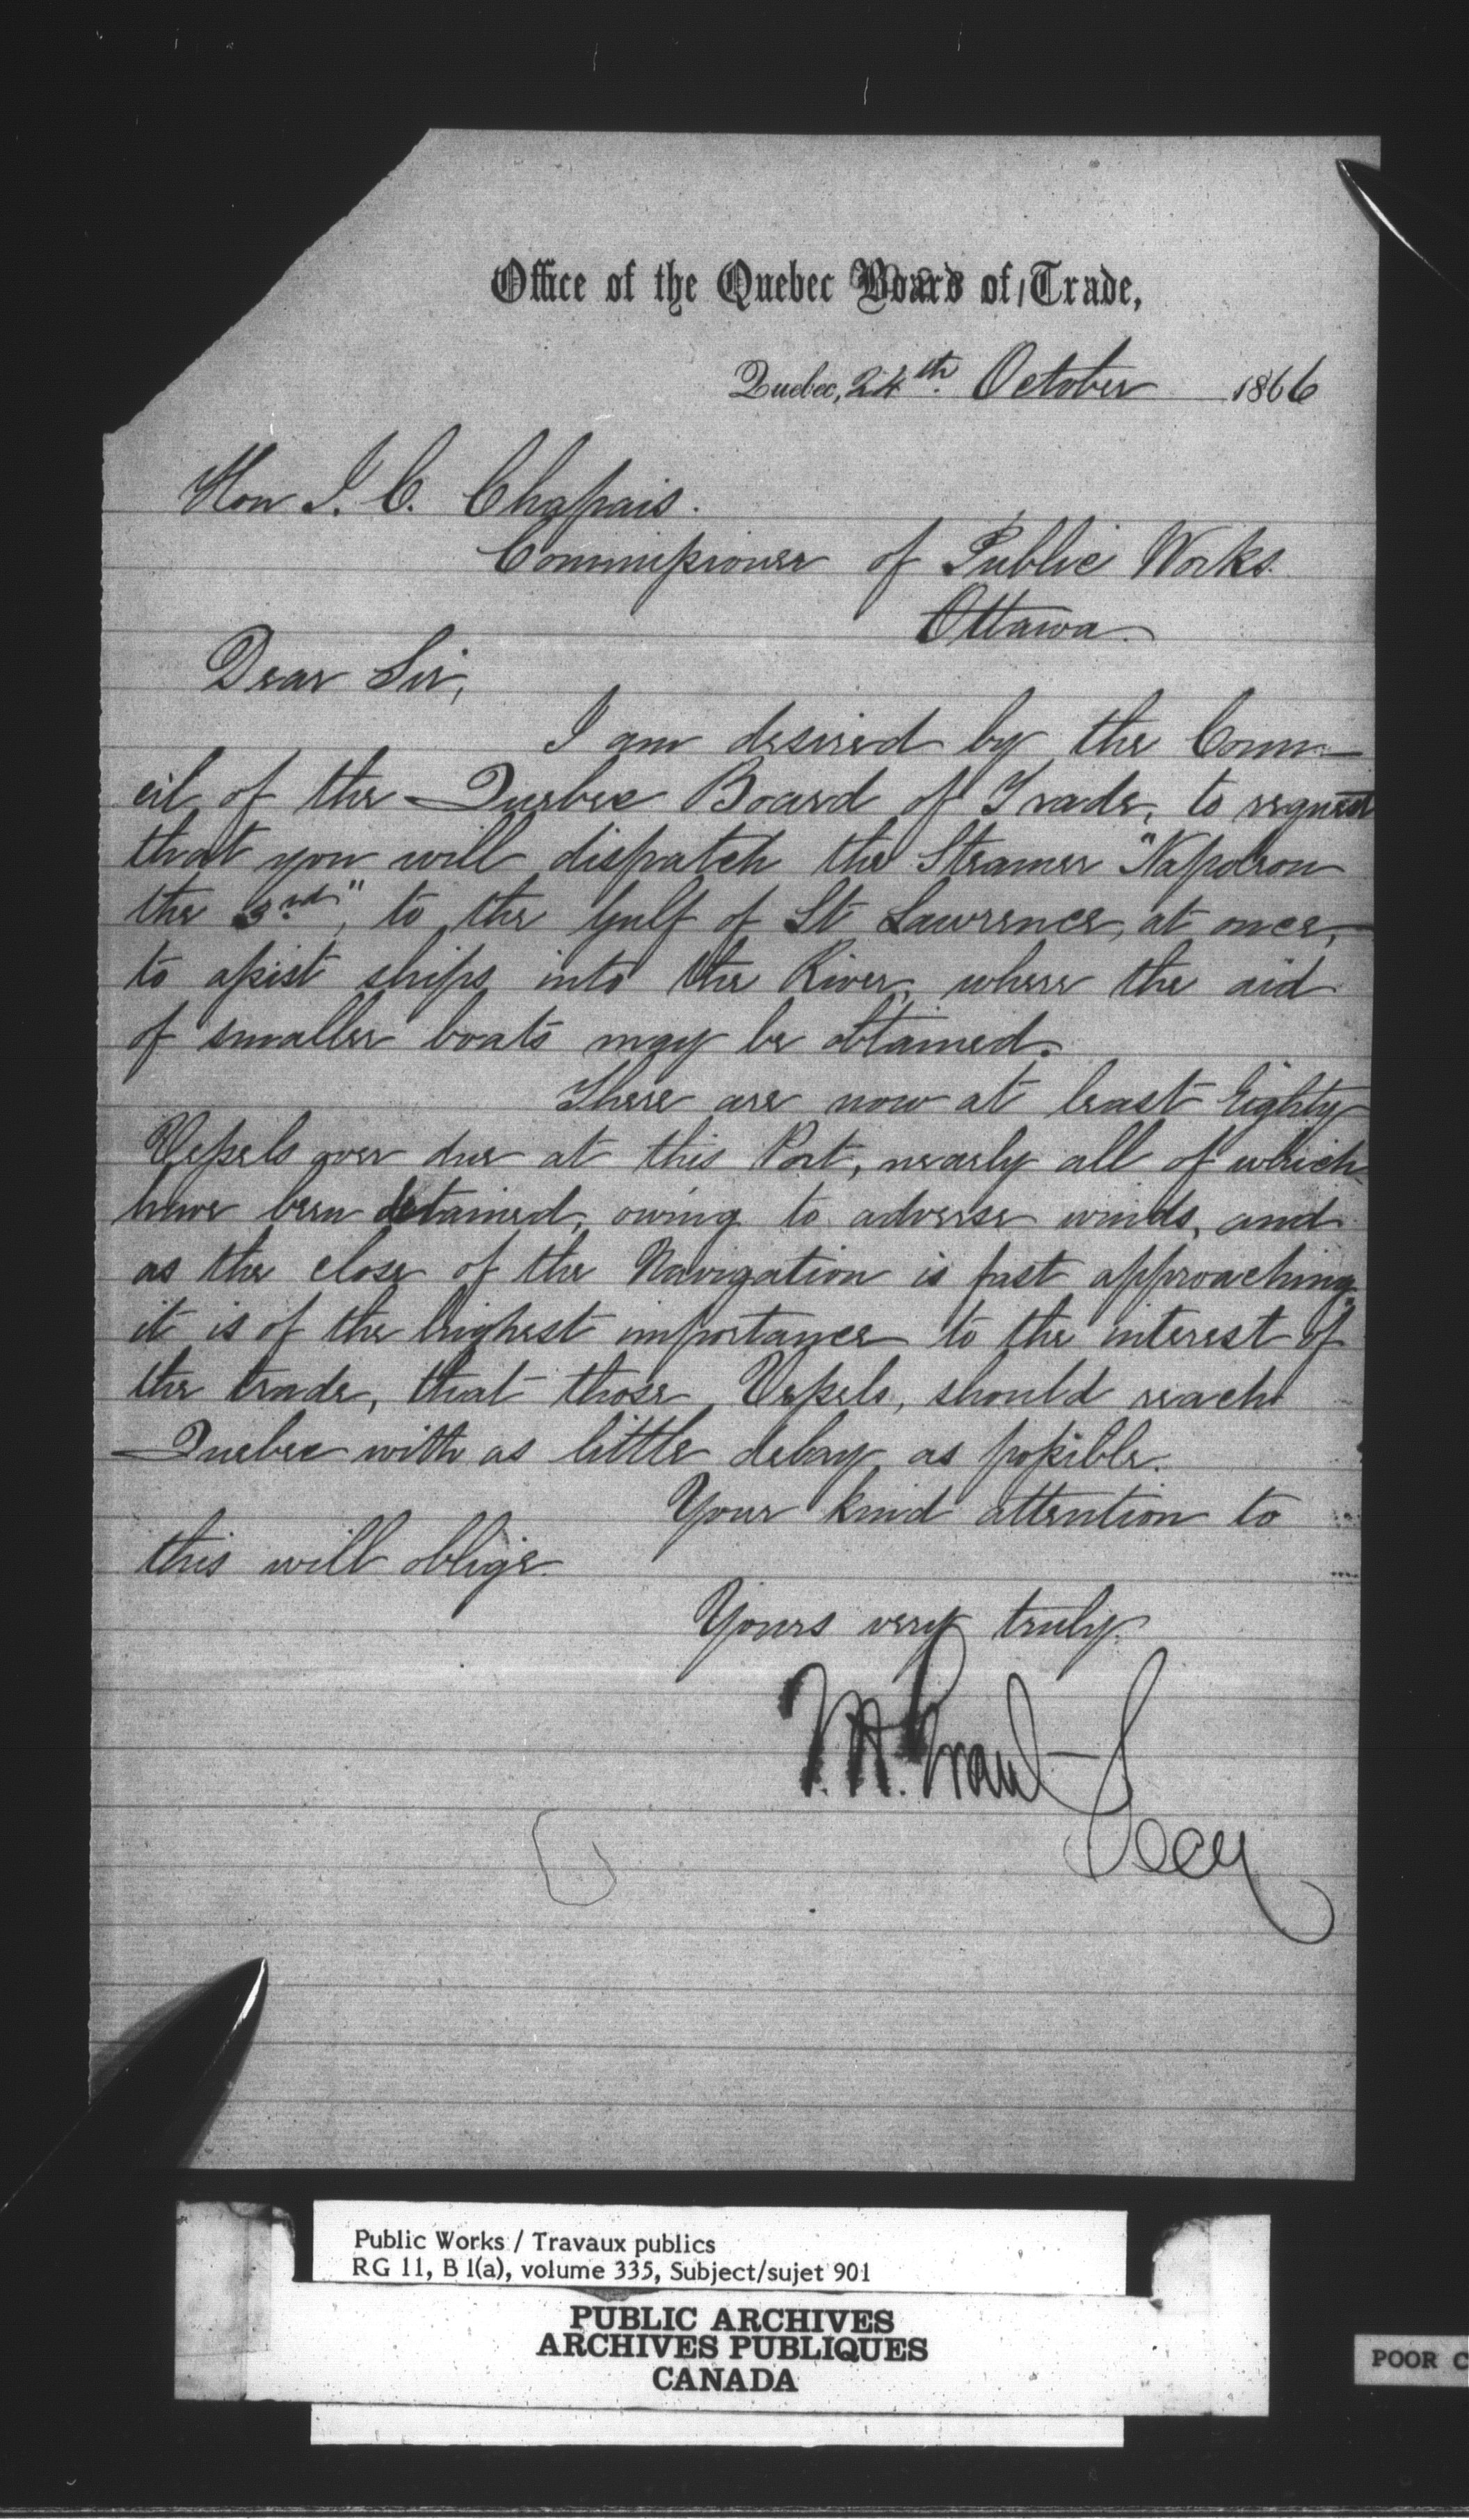 Office of the Quebec Board of Trade,
Quebec, 24th October 1866
Hon J. C. Chapais.
Commissioner of Public Works.
Ottawa.
Dear Sir,
I am desired by the Coun-
cil of the Quebec Board of Trade, to request
that you will dispatch the Steamer "Napoleon
the 3rd", to the Gulf of St Lawrence, at once,
to assist ships into the River, where the aid
of smaller boats may be obtained.
There are now at least Eighty
Vessels over due at this Port, nearly all of which
have been detained, owing to adverse winds, and
as the close of the Navigation is fast approaching,
it is of the highest importance to the interest of
the trade, that those Vessels, should reach
Quebec with as little delay as possible.
Your kind attention to
this will oblige.
Yours very truly.
Secy
Public Works / Travaux publics
RG 11, B 1(a), volume 335, Subject/sujet 901
PUBLIC ARCHIVES
ARCHIVES PUBLIQUES
CANADA
POOR C